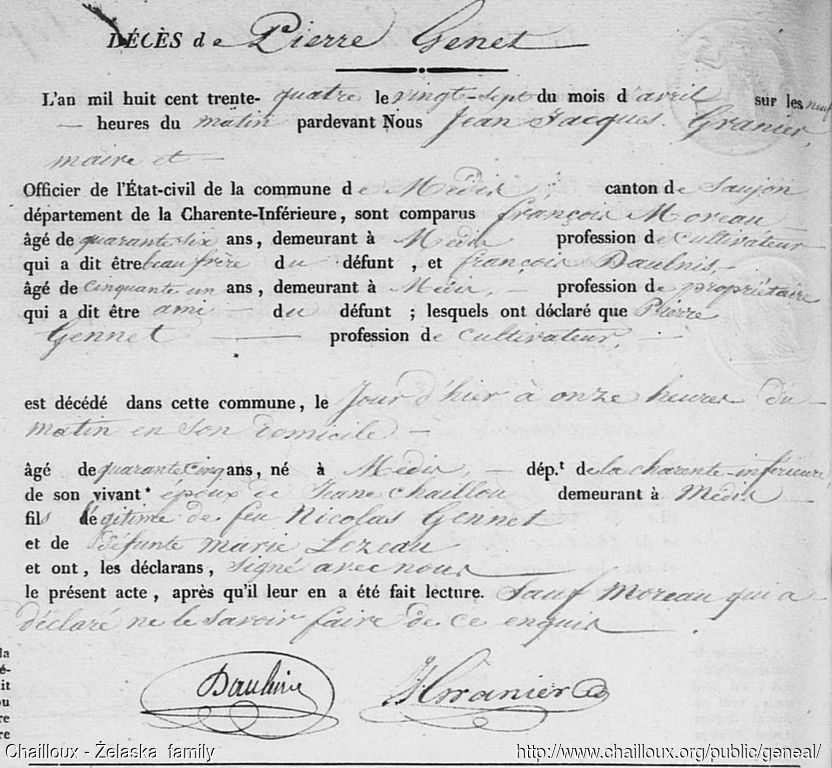 DÉCÈS de Pierre Genet
L'an mil huit cent trente-quatre le vingt-sept du mois d'avril sur les neuf
— heures du matin pardevant Nous Jean Jacques Granier,
maire et —
Officier de l'État-civil de la commune de Médis, canton de Saujon
département de la Charente-Inférieure, sont comparus françois Moreau —
âgé de quarante six ans, demeurant à Médis profession de cultivateur
qui a dit être beau frère du défunt, et françois Daulnis, —
âgé de cinquante un ans, demeurant à Médis, — profession de propriétaire
qui a dit être ami — du défunt ; lesquels ont déclaré que Pierre
Gennet — profession de cultivateur, —
est décédé dans cette commune, le Jour d'hier à onze heures du
matin en son domicile —
âgé de quarante cinq ans, né à Médis, — dép.t de la charente-inférieure,
de son vivant époux de Jeane Chaillou demeurant à Médis —
fils légitime de feu Nicolas Gennet
et de défunte marie Lezeau
et ont, les déclarans, signé avec nous —
le présent acte, après qu'il leur en a été fait lecture. Sauf Moreau qui a
déclaré ne le savoir faire de ce enquis —
la
é-
it
ou
re
re
Daulnis JJGranier
Chailloux - Żelaska family http://www.chailloux.org/public/geneal/